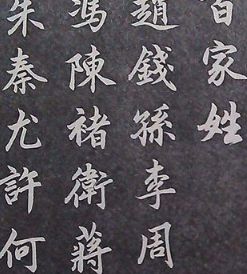 百家姓
趙錢孫李周
馮陳褚衛蔣
朱秦尤許何